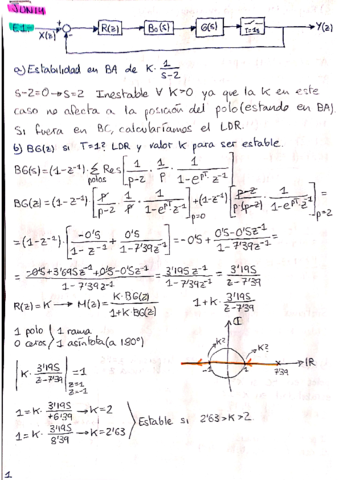 JUN14
E1.
X(z)
R(z)
B₀(s)
G(s)
T=1s
Y(z)
a) Estabilidad en BA de K·1/(s-2)
s-2=0→s=2 Inestable ∀ K>0 ya que la K en este
caso no afecta a la posición del polo (estando en BA)
Si fuera en BC, calcularíamos el LDR.
b) BG(z) si T=1? LDR y valor K para ser estable.
BG(s)=(1-z⁻¹)·Σ polos Res[1/(p-2)·1/p·1/(1-e^{pT}·z⁻¹)]
BG(z)=(1-z⁻¹)[p/(p-2)·1/p·1/(1-e^{pT}z⁻¹)]p=0+(1-z⁻¹)[p-2/(p·(p-2))·1/(1-e^{pT}z⁻¹)]p=2=
=(1-z⁻¹)·[-0'5/(1-z⁻¹)+0'5/(1-7'39z⁻¹)]=-0'5+(0'5-0'5z⁻¹)/(1-7'39z⁻¹)=
=(-0'5+3'695z⁻¹+0'5-0'5z⁻¹)/(1-7'39z⁻¹)=3'195z⁻¹/(1-7'39z⁻¹)=3'195/(z-7'39)
R(z)=K→M(z)=K·BG(z)/(1+K·BG(z)) 1+K·3'195/(z-7'39)
1 polo 1 rama
0 ceros 1 asíntota (a 180°)
K? K?
-1 1 7'39 IR
|K·3'195/(z-7'39)|=1 z=1 z=-1
1=K·3'195/+6'39→K=2
1=K·3'195/8'39→K=2'63
Estable si 2'63>K>2
1